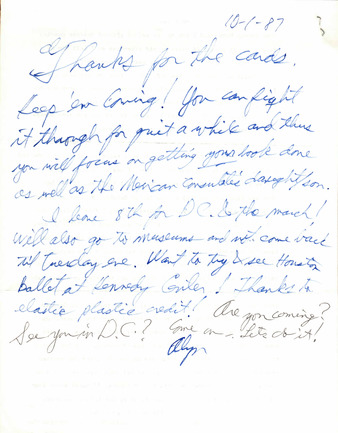 10-1-87
Thanks for the cards.
Keep 'em Coming! You can fight
it through for quit a while and thus
you will focus on getting your book done
as well as the Mexican Consulate's daughter/son.
I leave 8th for D.C. & the march!
Will also go to museums and not come back
'til Tuesday eve. Want to try & see Houston
Ballet at Kennedy Center! Thanks to
elastic plastic credit! Are you coming?
See you in D.C.? Come on - Let's do it!